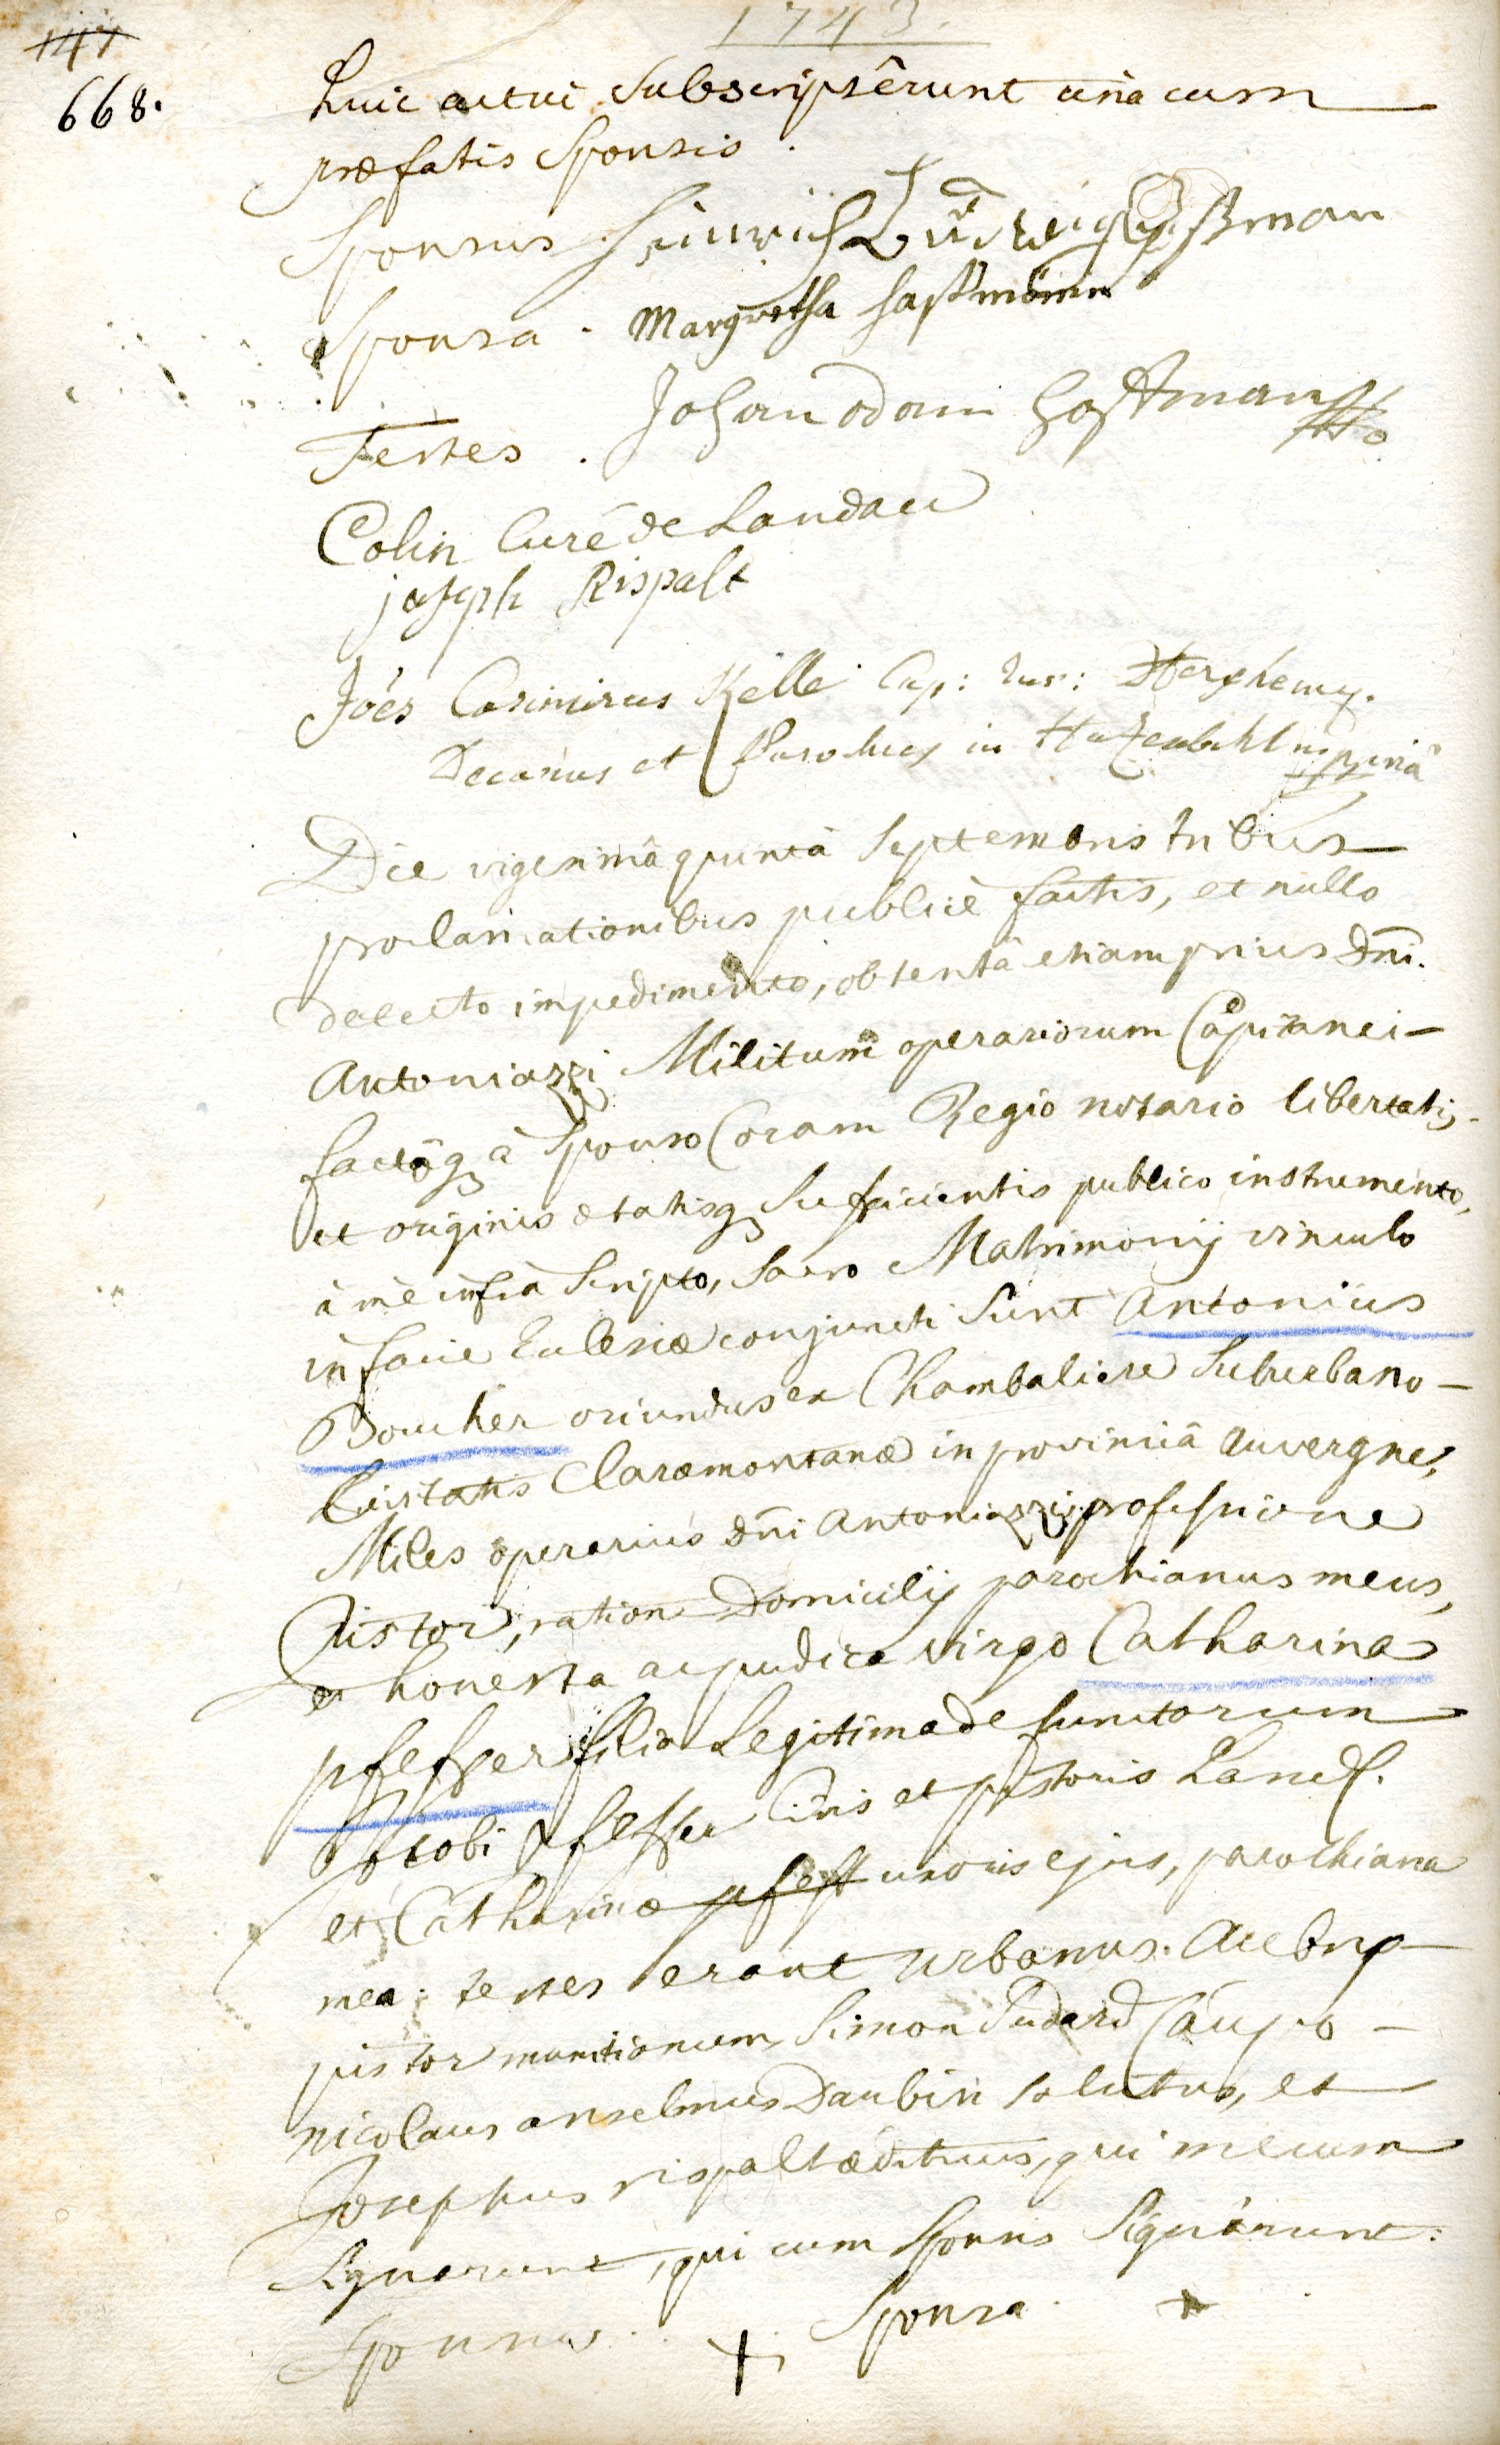 1743.
147
668.
huic actui subscripsêrunt unà cum
præfatis sponsis.
Sponsus Hinrich Ludwig
Sponsa. Margretha haßmänin
Johan adam haßman
Testes.
Colin Curé de Landau
joseph Rispalt
Joës Casimirus Kelle Cap: rur:
Decanus et Parochus in
Die vigesimâ quintâ Septembris tribus
proclamationibus publicè factis, et nullo
detecto impedimento, obtentâ etiam prius dñi.
Antoniazzi Militum operariorum Capitanei
factoq à Sponso Coram Regio notario libertatis
et originis ætatisq sufficientis publico instrumento,
à mè infrà scripto, sacro Matrimonij vinculo
in facie Ecclesiæ conjuncti sunt Antonius
Boucher oriundus ex Chambaliere suburbano
Civitatis Claræmontanæ in provinciâ Auvergne,
Miles operarius dñi Antoniazzi, professione
Pistor, ratione Domicilij parochianus meus,
et honesta ac pudica virgo Catharina
pfeffer filia Legitima defunctorum
Jacobi pfeffer Civis et pistoris Land.
et Catharinæ pfeff uxoris ejus, parochiana
mea: testes erant Urbanus
pistor munitionum, Simon Sudard Caupo
nicolaus anselmus Daubin solutus, et
Josephus rispalt ædituus, qui mecum
signarunt, qui cum Sponsis Signârunt:
Sponsus. + Sponsa. +